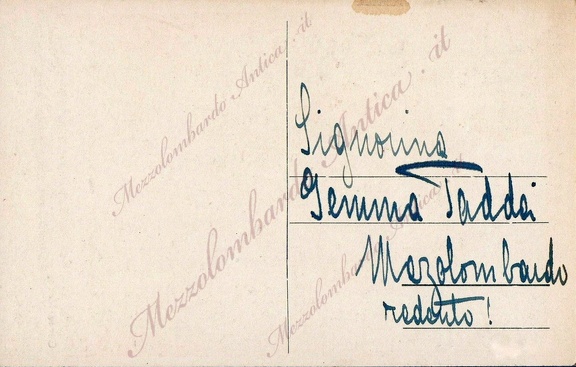 Mezzolombardo Antica . it
Mezzolombardo Antica . it
Mezzolombardo Antica . it
Signorina
Gemma Taddei
Mezolombardo
redento!